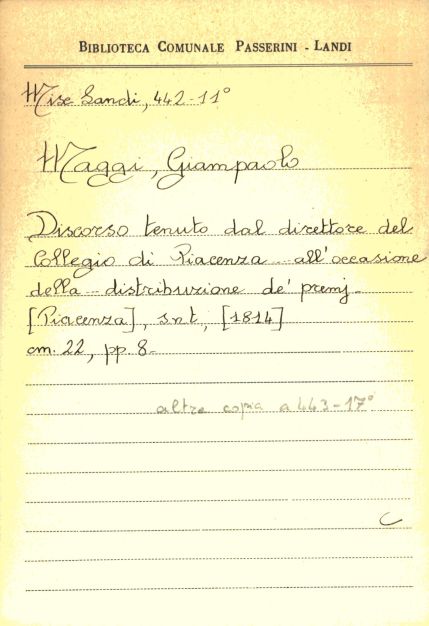 BIBLIOTECA COMUNALE PASSERINI - LANDI
Misc Landi, 442-11°
Maggi, Giampaolo
Discorso tenuto dal direttore del
Collegio di Piacenza all'occasione
della distribuzione de' premj.
[Piacenza], s.n.t., [1814]
cm. 22, pp. 8
altra copia a 443-17°
C